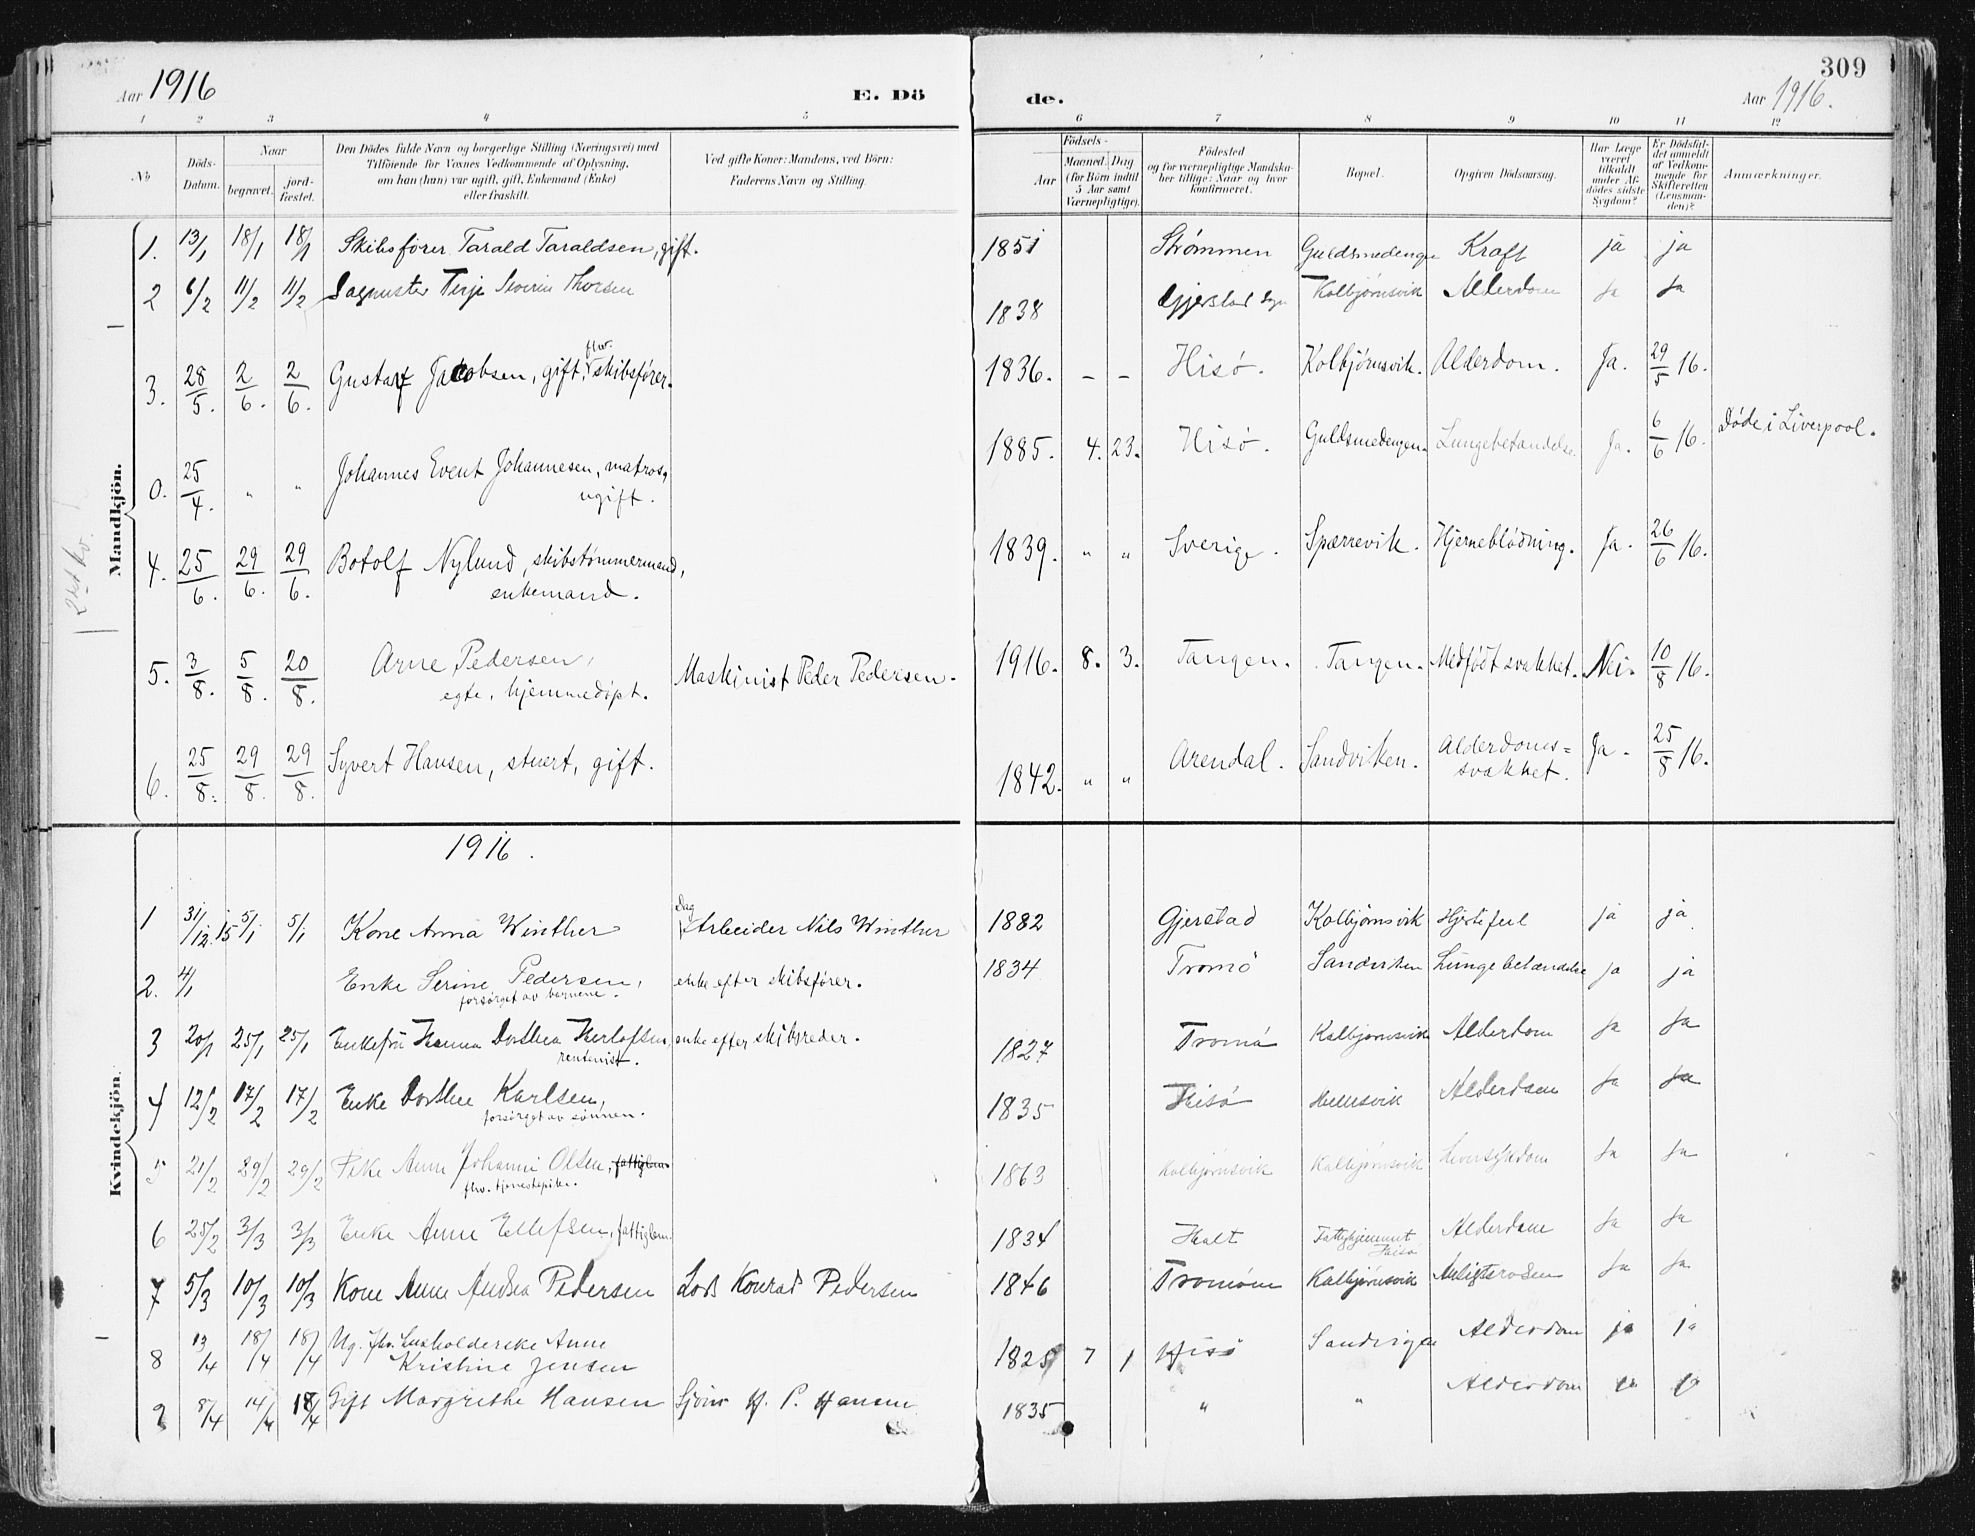 309
Aar 1916
E. Dö
de.
Aar 1916.
1 2 3 4 5 6 7 8 9 10 11 12
No
Döds-Datum.
Naar
begravet.
jord-fæstet.
Den Dödes fulde Navn og borgerlige Stilling (Næringsvei) med
Tilföiende for Voxnes Vedkommende af Oplysning,
om han (hun) var ugift, gift, Enkemand (Enke)
eller fraskilt.
Ved gifte Koner: Mandens, ved Börn:
Faderens Navn og Stilling.
Födsels-
Aar
Maaned. Dag
(for Börn indtil
5 Aar samt
Værnepligtige).
Födested
og for værnepligtige Mandska-
ber tillige: Naar og hvor
konfirmeret.
Bopæl.
Opgiven Dödsaarsag.
Har Læge
været
tilkaldt
under Af-
dödes sidste
Sygdom?
Er Dödsfal-
det anmeldt
af Vedkom-
mende for
Skifteretten
(Lensman-
den)?
Anmærkninger.
Mandkjön.
1. 13/1 18/1 18/1 Skibsfører Tarald Taraldsen, gift. 1851 Strømmen Guldsmedengen Kraft ja ja
2 6/2 11/2 11/2 Terje Thorsen 1838 Kolbjørnsvik Alderdom Ja Ja
3. 28/5. 2/6. 2/6. Gustaf Jacobsen, gift, fhv. skibsfører. 1836. – – Hisö. Kolbjørnsvik. Alderdom. Ja. 29/5 16.
0. 25/4. " " Johannes Event Johannesen, matros, 1885. 4. 23. Hisö. Guldsmedengen. Lungebetændelse. Ja. 6/6 16. Döde i Liverpool.
ugift.
4. 25/6. 29/6. 29/6. Botolf Nylund, skibstømmermand, 1839. " " Sverige. Spærrevik. Hjerneblödning. Ja. 26/6 16.
enkemand.
5. 3/8. 5/8. 20/8. Arne Pedersen, Maskinist Peder Pedersen. 1916. 8. 3. Tangen. Tangen. Medfödt svakhet. Nei. 10/8 16.
egte, hjemmedöpt.
6. 25/8. 29/8. 29/8. Syvert Hansen, stuert, gift. 1842. " " Arendal. Sandviken. Alderdoms=
svakhet. Ja. 25/8 16.
Kvindekjön.
1916.
1 31/12 15 5/1 5/1 Kone Anna Winther Dag Arbeider Nils Winther 1882 Gjerstad Kolbjørnsvik Hjertefeil ja ja
2. 4/1 Enke Serine Pedersen, enke efter skibsfører. 1834 Tromö Sandviken Lungebetændelse ja ja
forsørget av barnene.
3 20/1 25/1 25/1 Enkefru Hanna Dorthea Herlofsen, enke efter skibsreder. 1827 Tromö Kolbjørnsvik Alderdom Ja Ja
rentenist.
4 12/2 17/2 17/2 Enke Dorthea Karlsen, 1835 Hisö Alderdom Ja Ja
forsørget av sønnen.
5 21/2 29/2 29/2 Pike Anne Johanne Olsen, fattiglem 1863 Kolbjørnsvik Kolbjørnsvik Leversykdom Ja Ja
fhv. tjenestepike.
6 25/2 3/3 3/3 Enke Anne Ellefsen, fattiglem. 1834 Holt Fattighjemmet
Hisö Alderdom Ja Ja
7 5/3 10/3 10/3 Kone Anne Andrea Pedersen Lods Konrad Pedersen 1846 Tromöen Kolbjørnsvik Ja Ja
8 13/4 18/4 18/4 Ug. fhv. husholderske Anne
Kristine Jensen 1825 7 1 Hisö Sandvigen Alderdom ja ja
9 8/4 14/4 18/4 Gift Margrethe Hansen H. P. Hansen 1835 " " Alderdom ja ja